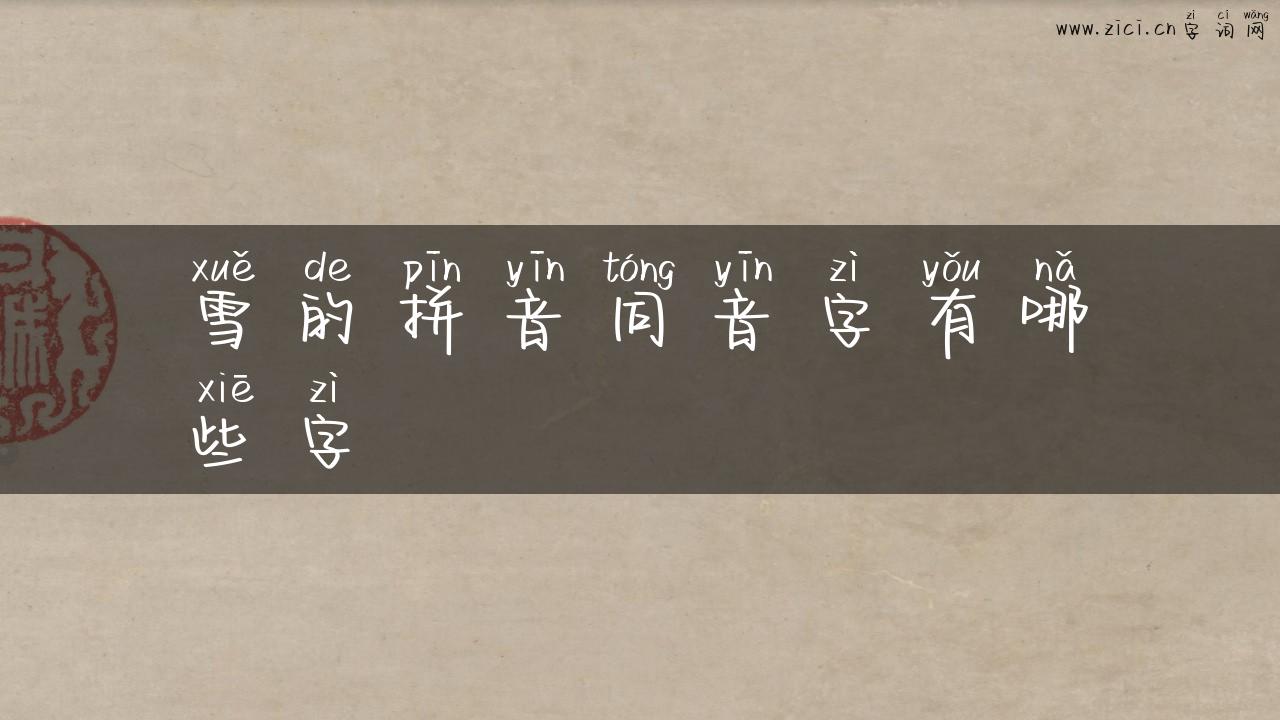 zì cí wǎng
www.zici.cn 字词网
xuě de pīn yīn tóng yīn zì yǒu nǎ
雪的拼音同音字有哪
xiē zì
些字